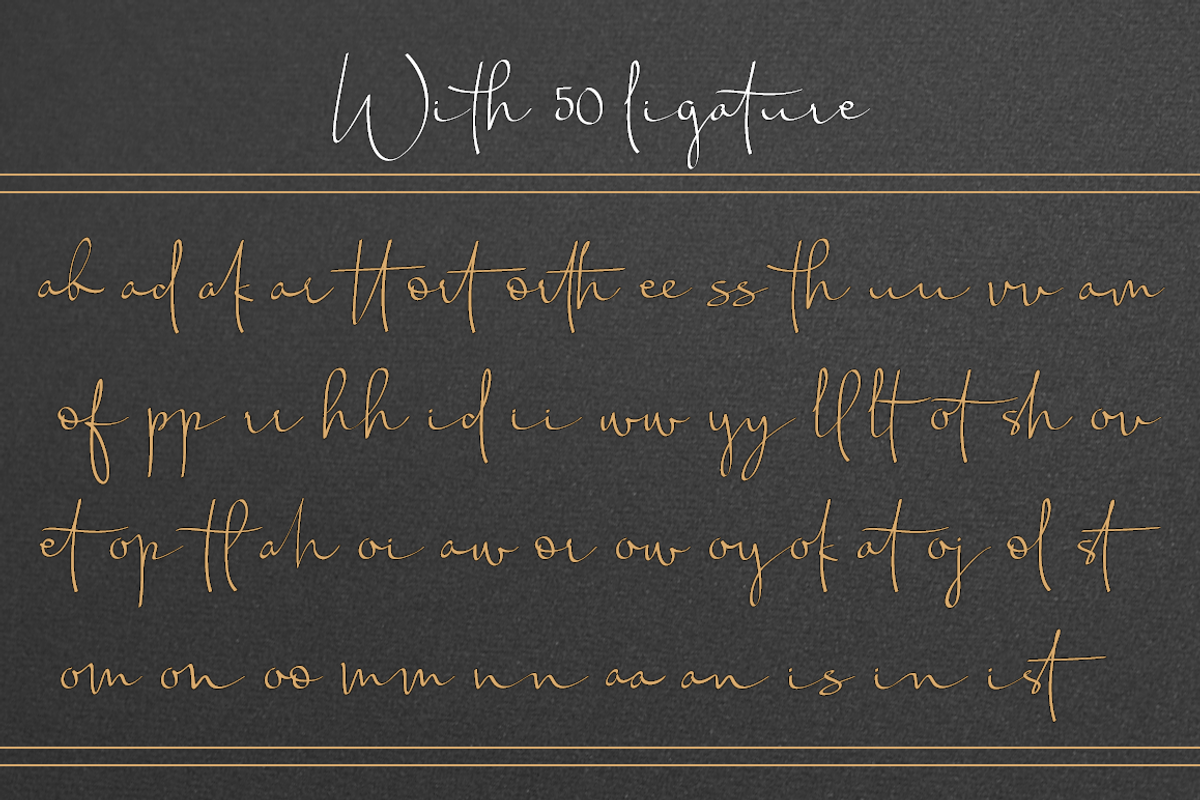 With 50 ligature
ab ad ak ar tt ort orth ee ss th uu vv am
of pp rr hh id ii ww yy ll lt ot sh ov
et op tl ah oi aw or ow oy ok at oj ol st
om on oo mm nn aa an is in ist